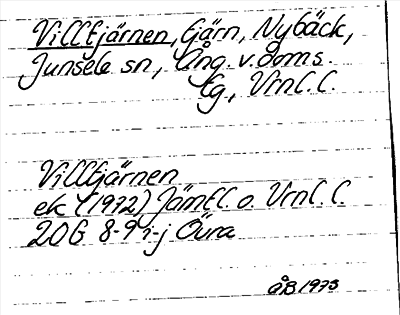 Villtjärnen, tjärn, Nybäck,
Junsele sn, Ång. v. doms.
tg, Vrnl. l.
Villtjärnen
ek (1972) Jämtl. o. Vrnl. l.
20G 8-9 i-j Öura
ÅB 1973